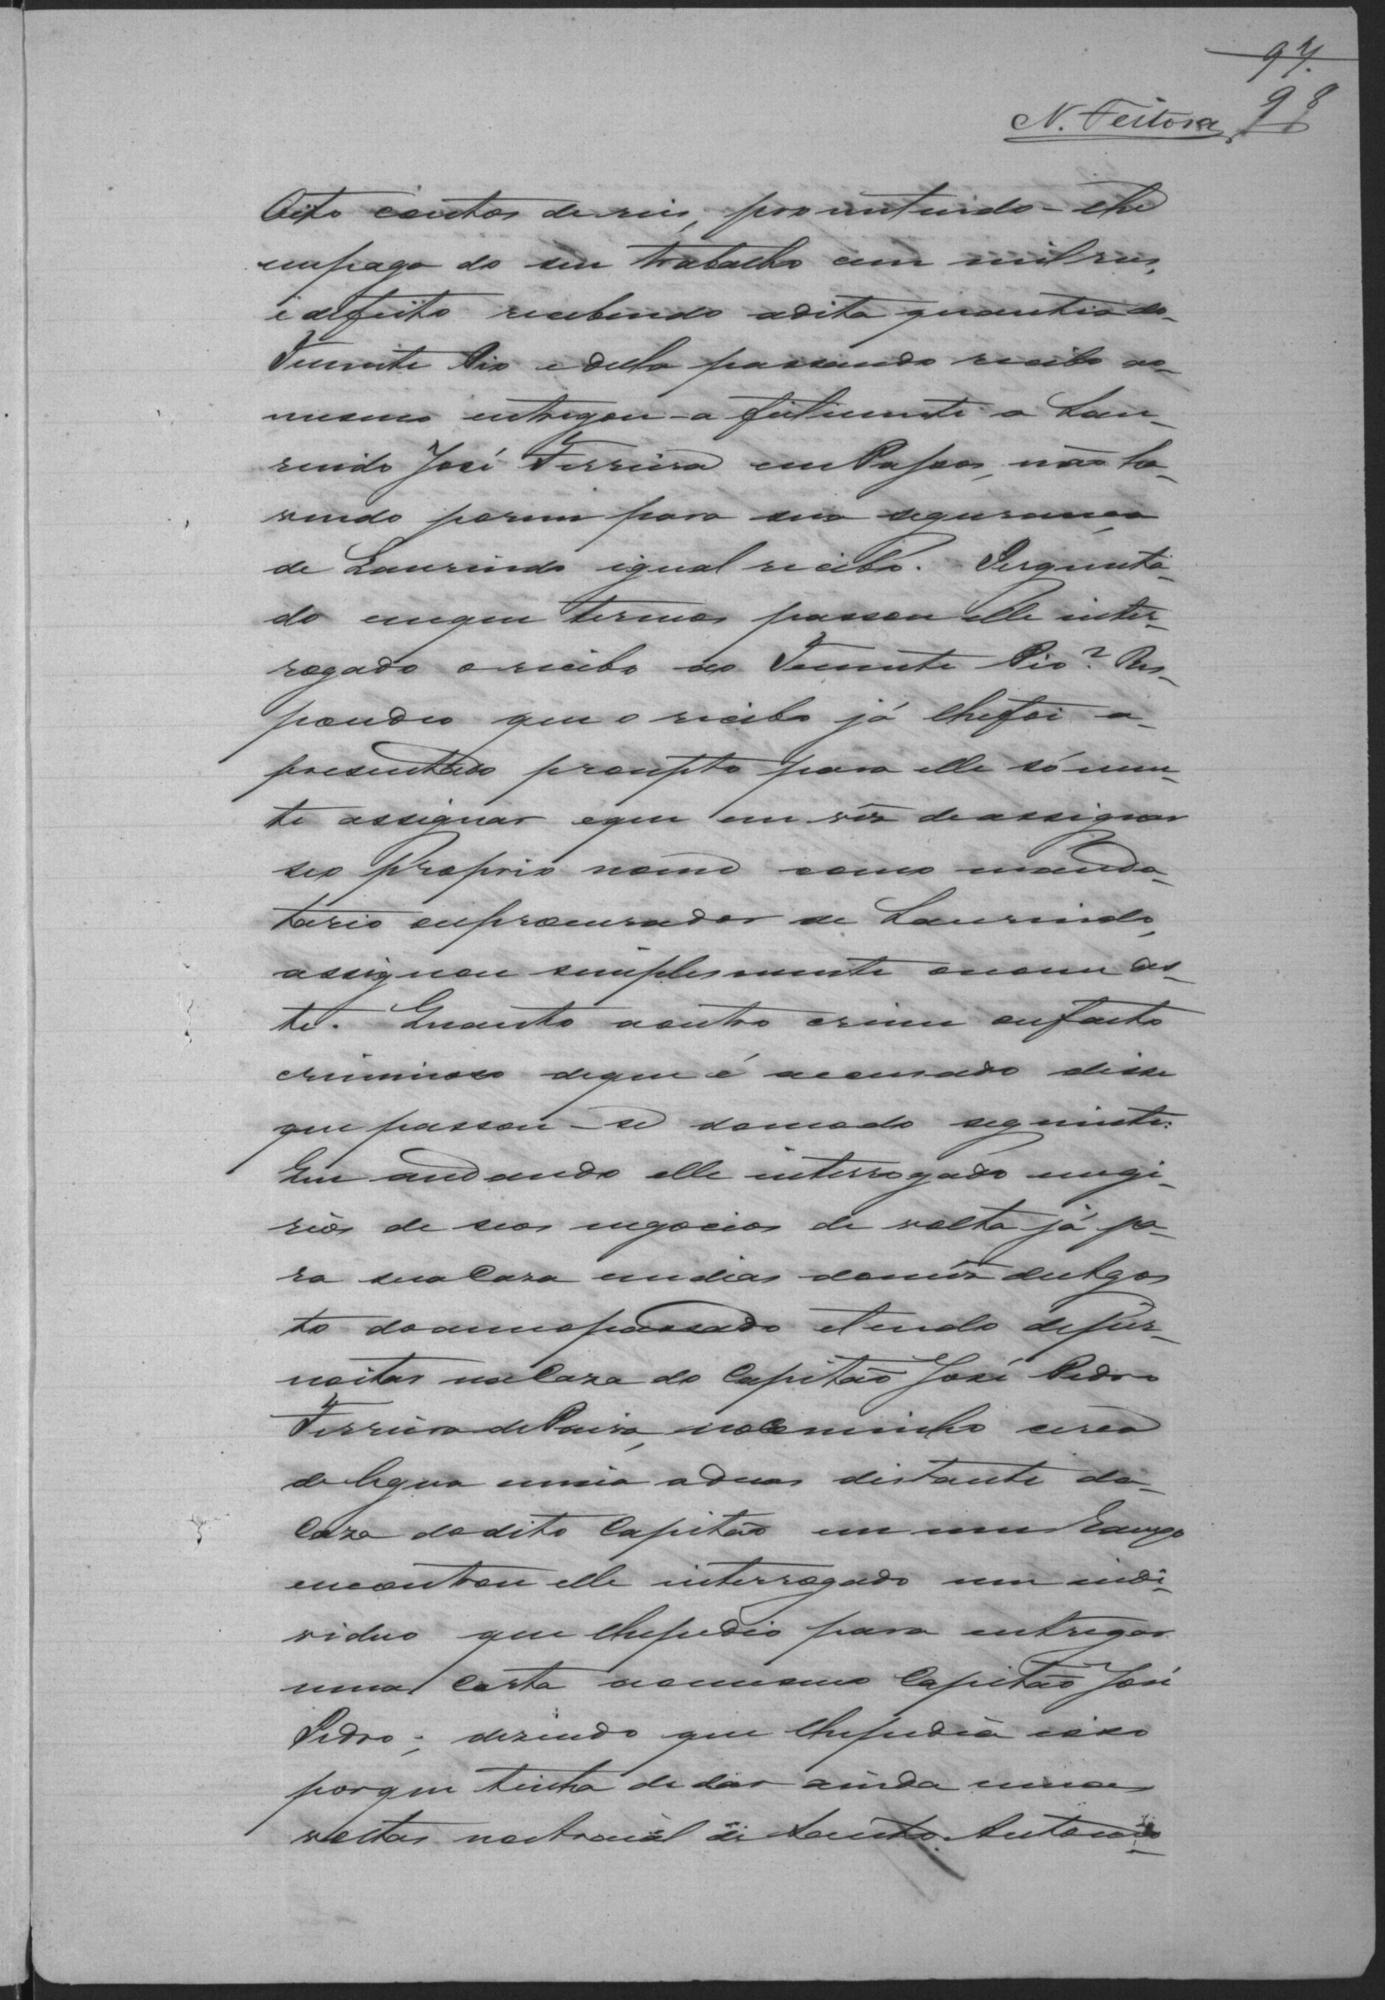 97.
98
N. Feitosa
Oito contos de reis, promettendo-lhe
empaga do seu trabalho cem mil reis,
e defeito recebendo adita quantia do
Tenente Pio e della passando recibo ao
mesmo entregou-a fielmente a Lau-
rindo José Ferreira em Passos, não ha-
vendo porem para sua segurança
de Laurindo igual recibo. Pergunta-
do emque termos passou elle inter-
rogado o recibo ao Tenente Pio? Res-
pondeu que o recibo já lhefoi a-
presentado prompto para elle sómen-
te assignar eque em vez deassignar
seo proprio nome como manda-
tario ouprocurador de Laurindo,
assignou simplesmente onome des-
te. Quanto aoutro crime oufacto
criminoso deque é accusado disse
que passou-se domodo seguinte:
Em andando elle interrogado emgi-
ros de seos negocios de volta já pa-
ra suaCaza emdias domez deAgos
to doannopassado etendo deper-
noitar naCaza do Capitão José Pedro
Ferreira dePaiva, nocaminho cerca
de legua emeia aduas distante da
Caza dodito Capitão em um
encontrou elle interrogado um indi-
viduo que lhepedio para entregar
uma Carta aomesmo Capitão José
Pedro; dizendo que lhepedia isso
porque tinha dedar ainda umas
voltas noArraial de Santo Antonio